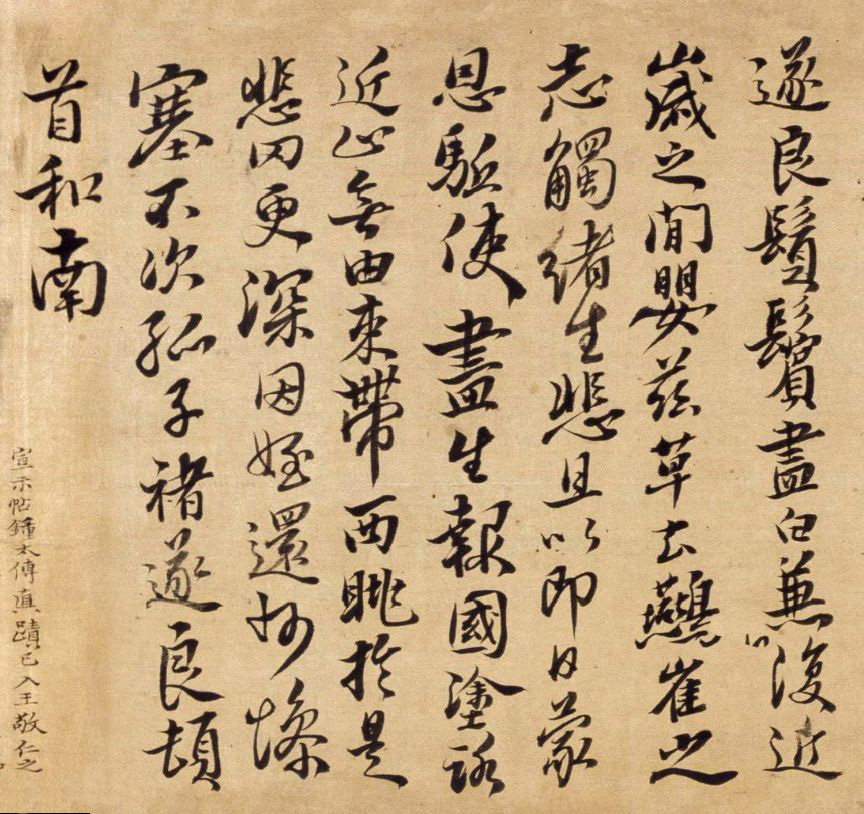 遂良鬚鬢盡白兼復近
歲之間嬰茲草土鷰雀之
志觸緒生悲且以即日蒙
恩駈使盡生報國塗路
近止無由來帶西眺於是
悲罔更深因姪還州慘
塞不次孤子褚遂良頓
首和南
宣示帖鍾太傅真蹟已入王敬仁之